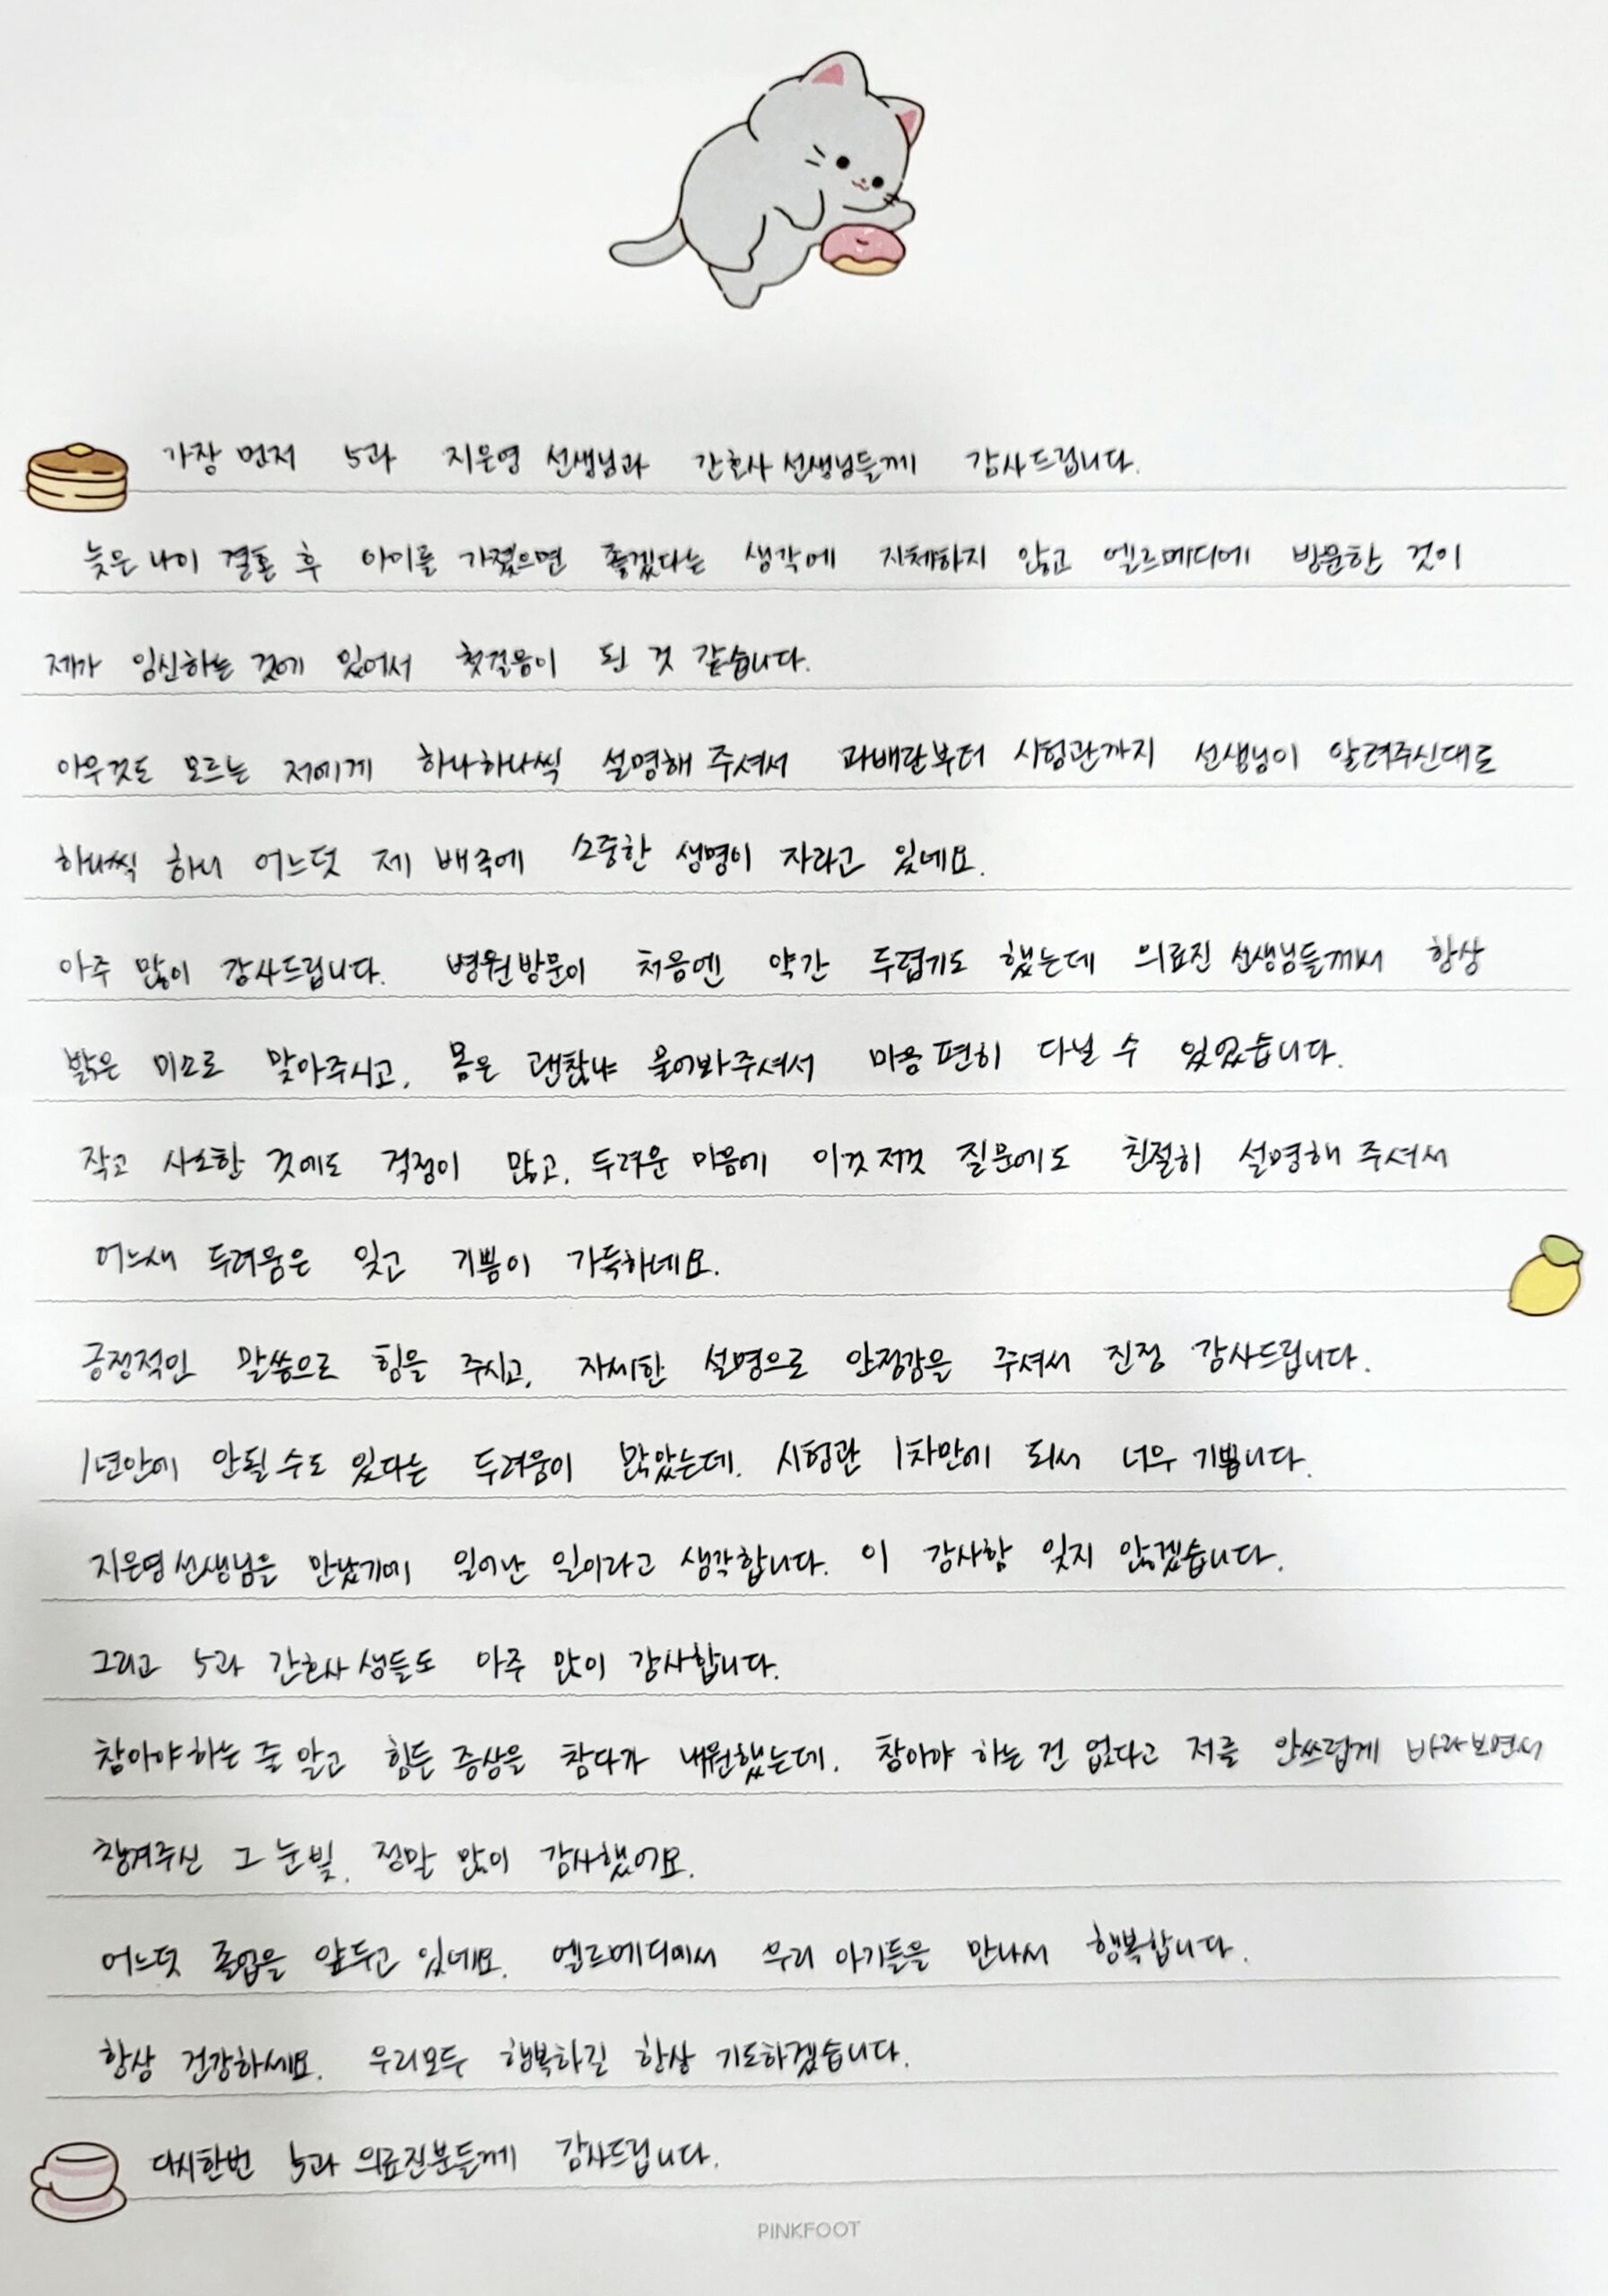 가장 먼저 5과 지은영 선생님과 간호사 선생님들께 감사드립니다.
늦은 나이 결혼 후 아이를 가졌으면 좋겠다는 생각에 지체하지 않고 엘르메디에 방문한 것이
제가 임신하는 것에 있어서 첫걸음이 된 것 같습니다.
아무것도 모르는 저에게 하나하나씩 설명해 주셔서 과배란부터 시험관까지 선생님이 알려주신대로
하나씩 하니 어느덧 제 배속에 소중한 생명이 자라고 있네요.
아주 많이 감사드립니다. 병원방문이 처음엔 약간 두렵기도 했는데 의료진 선생님들께서 항상
밝은 미소로 맞아주시고, 몸은 괜찮냐 물어봐주셔서 마음 편히 다닐 수 있었습니다.
작고 사소한 것에도 걱정이 많고, 두려운 마음에 이것저것 질문에도 친절히 설명해 주셔서
어느새 두려움은 잊고 기쁨이 가득하네요.
긍정적인 말씀으로 힘을 주시고, 자세한 설명으로 안정감을 주셔서 진정 감사드립니다.
1년안에 안될수도 있다는 두려움이 많았는데. 시험관 1차만에 되서 너무 기쁩니다.
지은영선생님을 만났기에 일어난 일이라고 생각합니다. 이 감사함 잊지 않겠습니다.
그리고 5과 간호사 쌤들도 아주 많이 감사합니다.
참아야하는 줄 알고 힘든 증상을 참다가 내원했는데. 참아야 하는 건 없다고 저를 안쓰럽게 바라보면서
챙겨주신 그 눈빛. 정말 많이 감사했어요.
어느덧 졸업을 앞두고 있네요. 엘르메디에서 우리 아기들을 만나서 행복합니다.
항상 건강하세요. 우리모두 행복하길 항상 기도하겠습니다.
다시한번 5과 의료진분들께 감사드립니다.
PINKFOOT